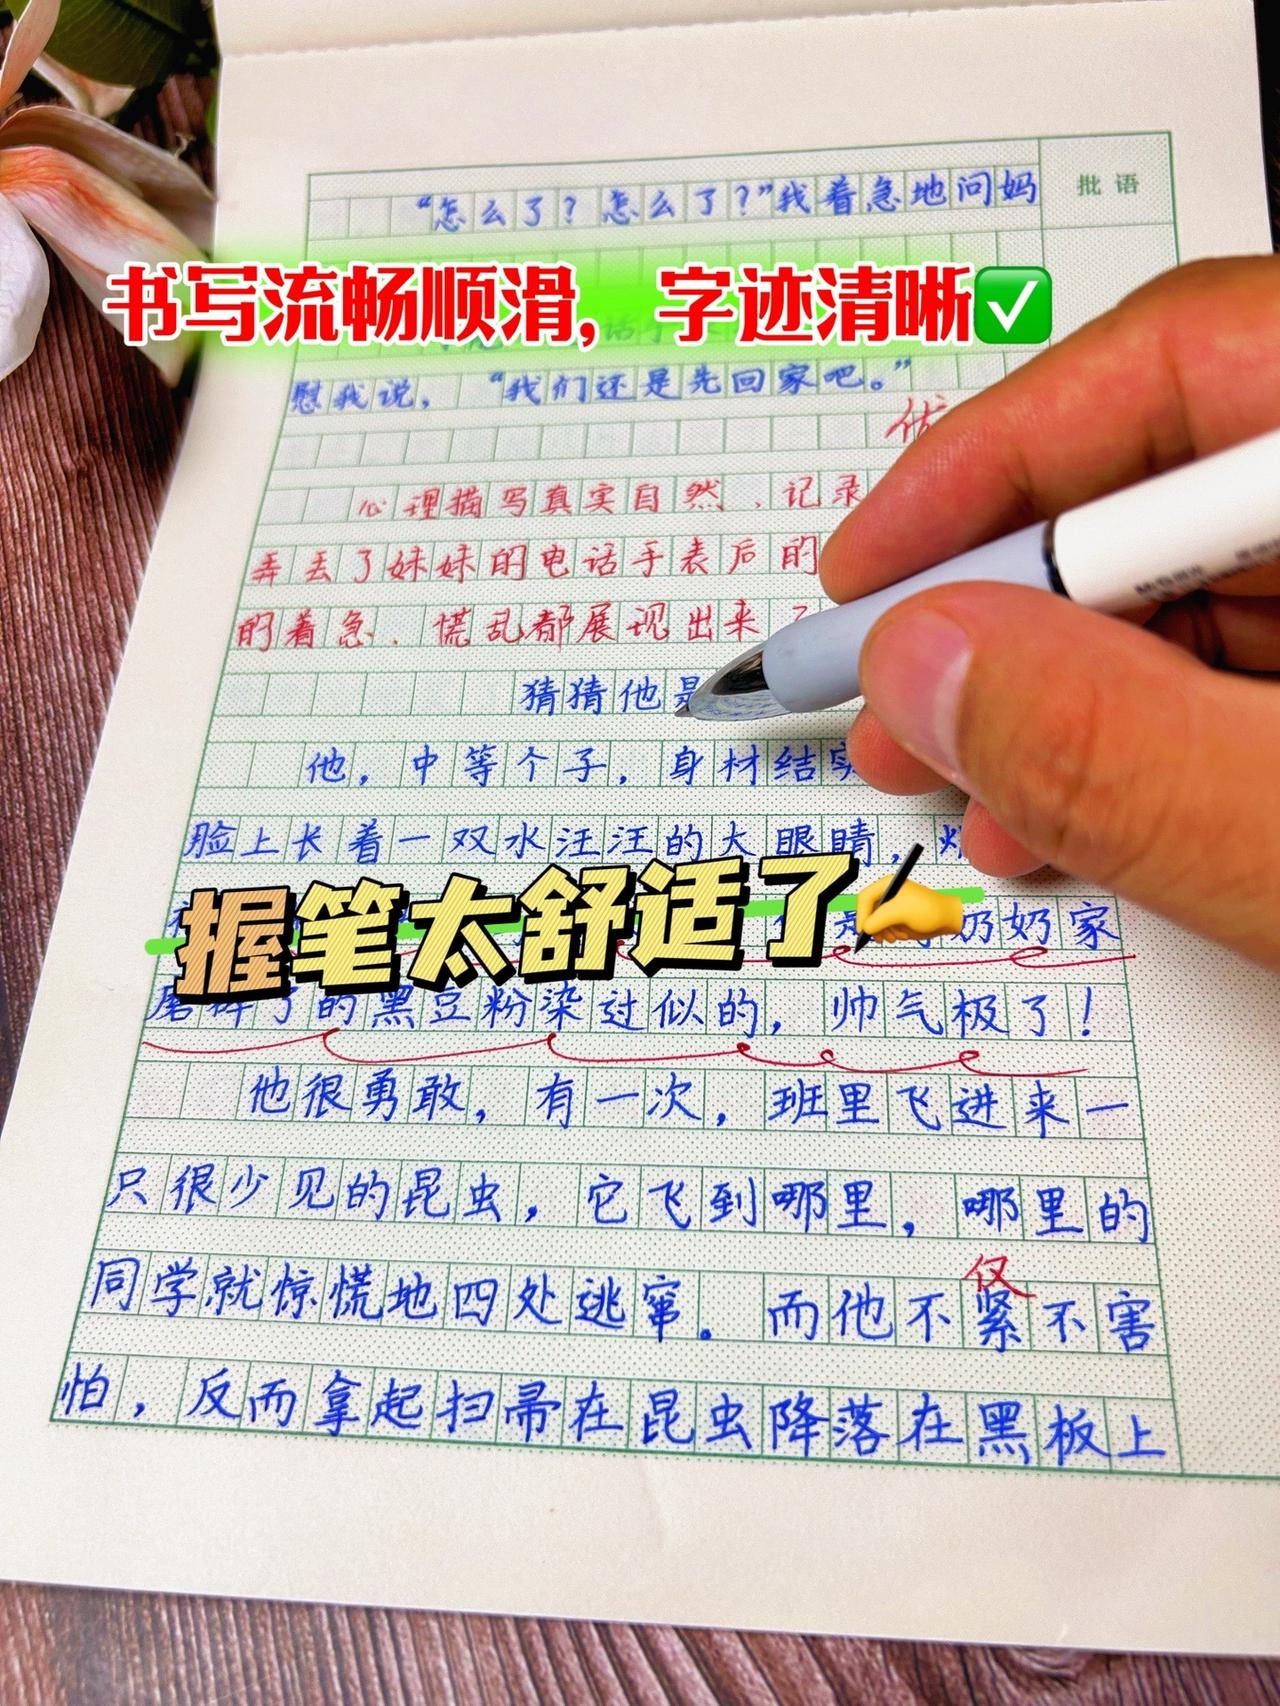 “怎么了？怎么了？”我着急地问妈
批语
书写流畅顺滑，字迹清晰✅
慰我说，“我们还是先回家吧。”
优
心理描写真实自然、记录
弄丢了妹妹的电话手表后的
的着急、慌乱都展现出来了
猜猜他是
他，中等个子，身材结实
脸上长着一双水汪汪的大眼睛，
握笔太舒适了✍
奶奶家
磨碎了的黑豆粉染过似的，帅气极了！
他很勇敢，有一次，班里飞进来一
只很少见的昆虫，它飞到哪里，哪里的
仅
同学就惊慌地四处逃窜。而他不紧不害
怕，反而拿起扫帚在昆虫降落在黑板上